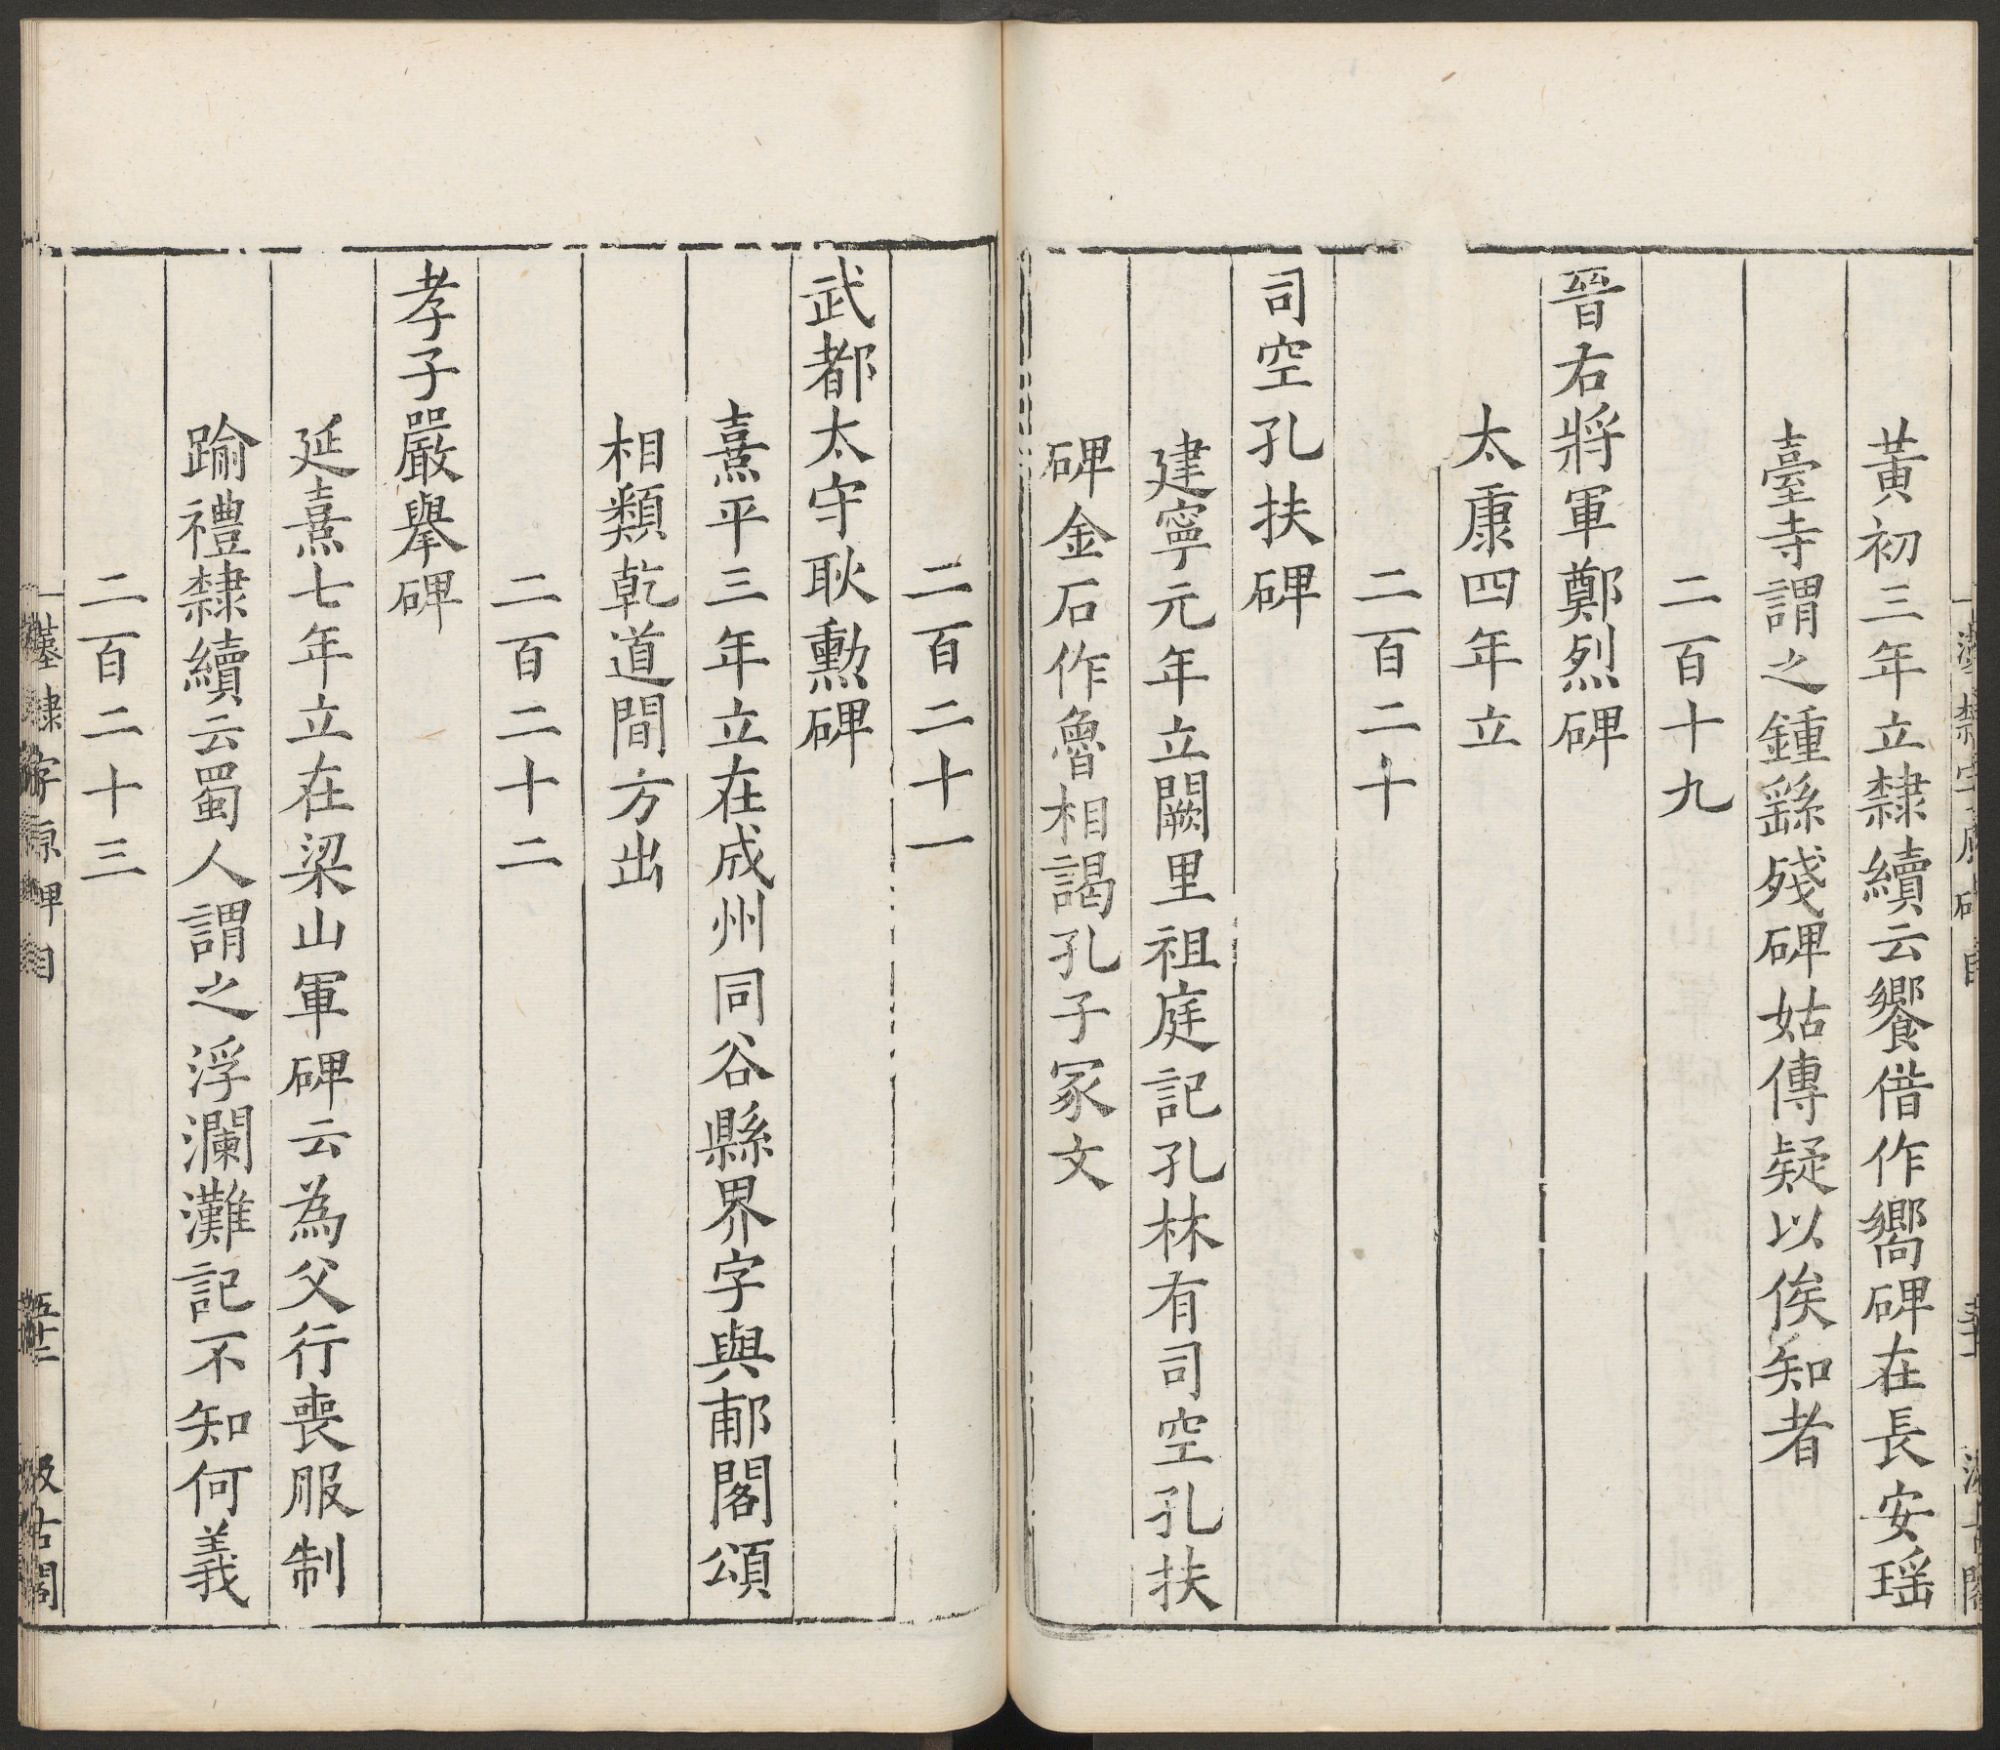 黃初三年立隸續云饗借作嚮碑在長安瑶
臺寺謂之鍾繇殘碑姑傳疑以俟知者
二百十九
晉右將軍鄭烈碑
太康四年立
二百二十
司空孔扶碑
建寧元年立闕里祖庭記孔林有司空孔扶
碑金石作魯相謁孔子冢文
二百二十一
武都太守耿勳碑
熹平三年立在成州同谷縣界字與郙閣頌
相類乾道間方出
二百二十二
孝子嚴舉碑
延熹七年立在梁山軍碑云為父行喪服制
踰禮隸續云蜀人謂之浮瀾灘記不知何義
二百二十三